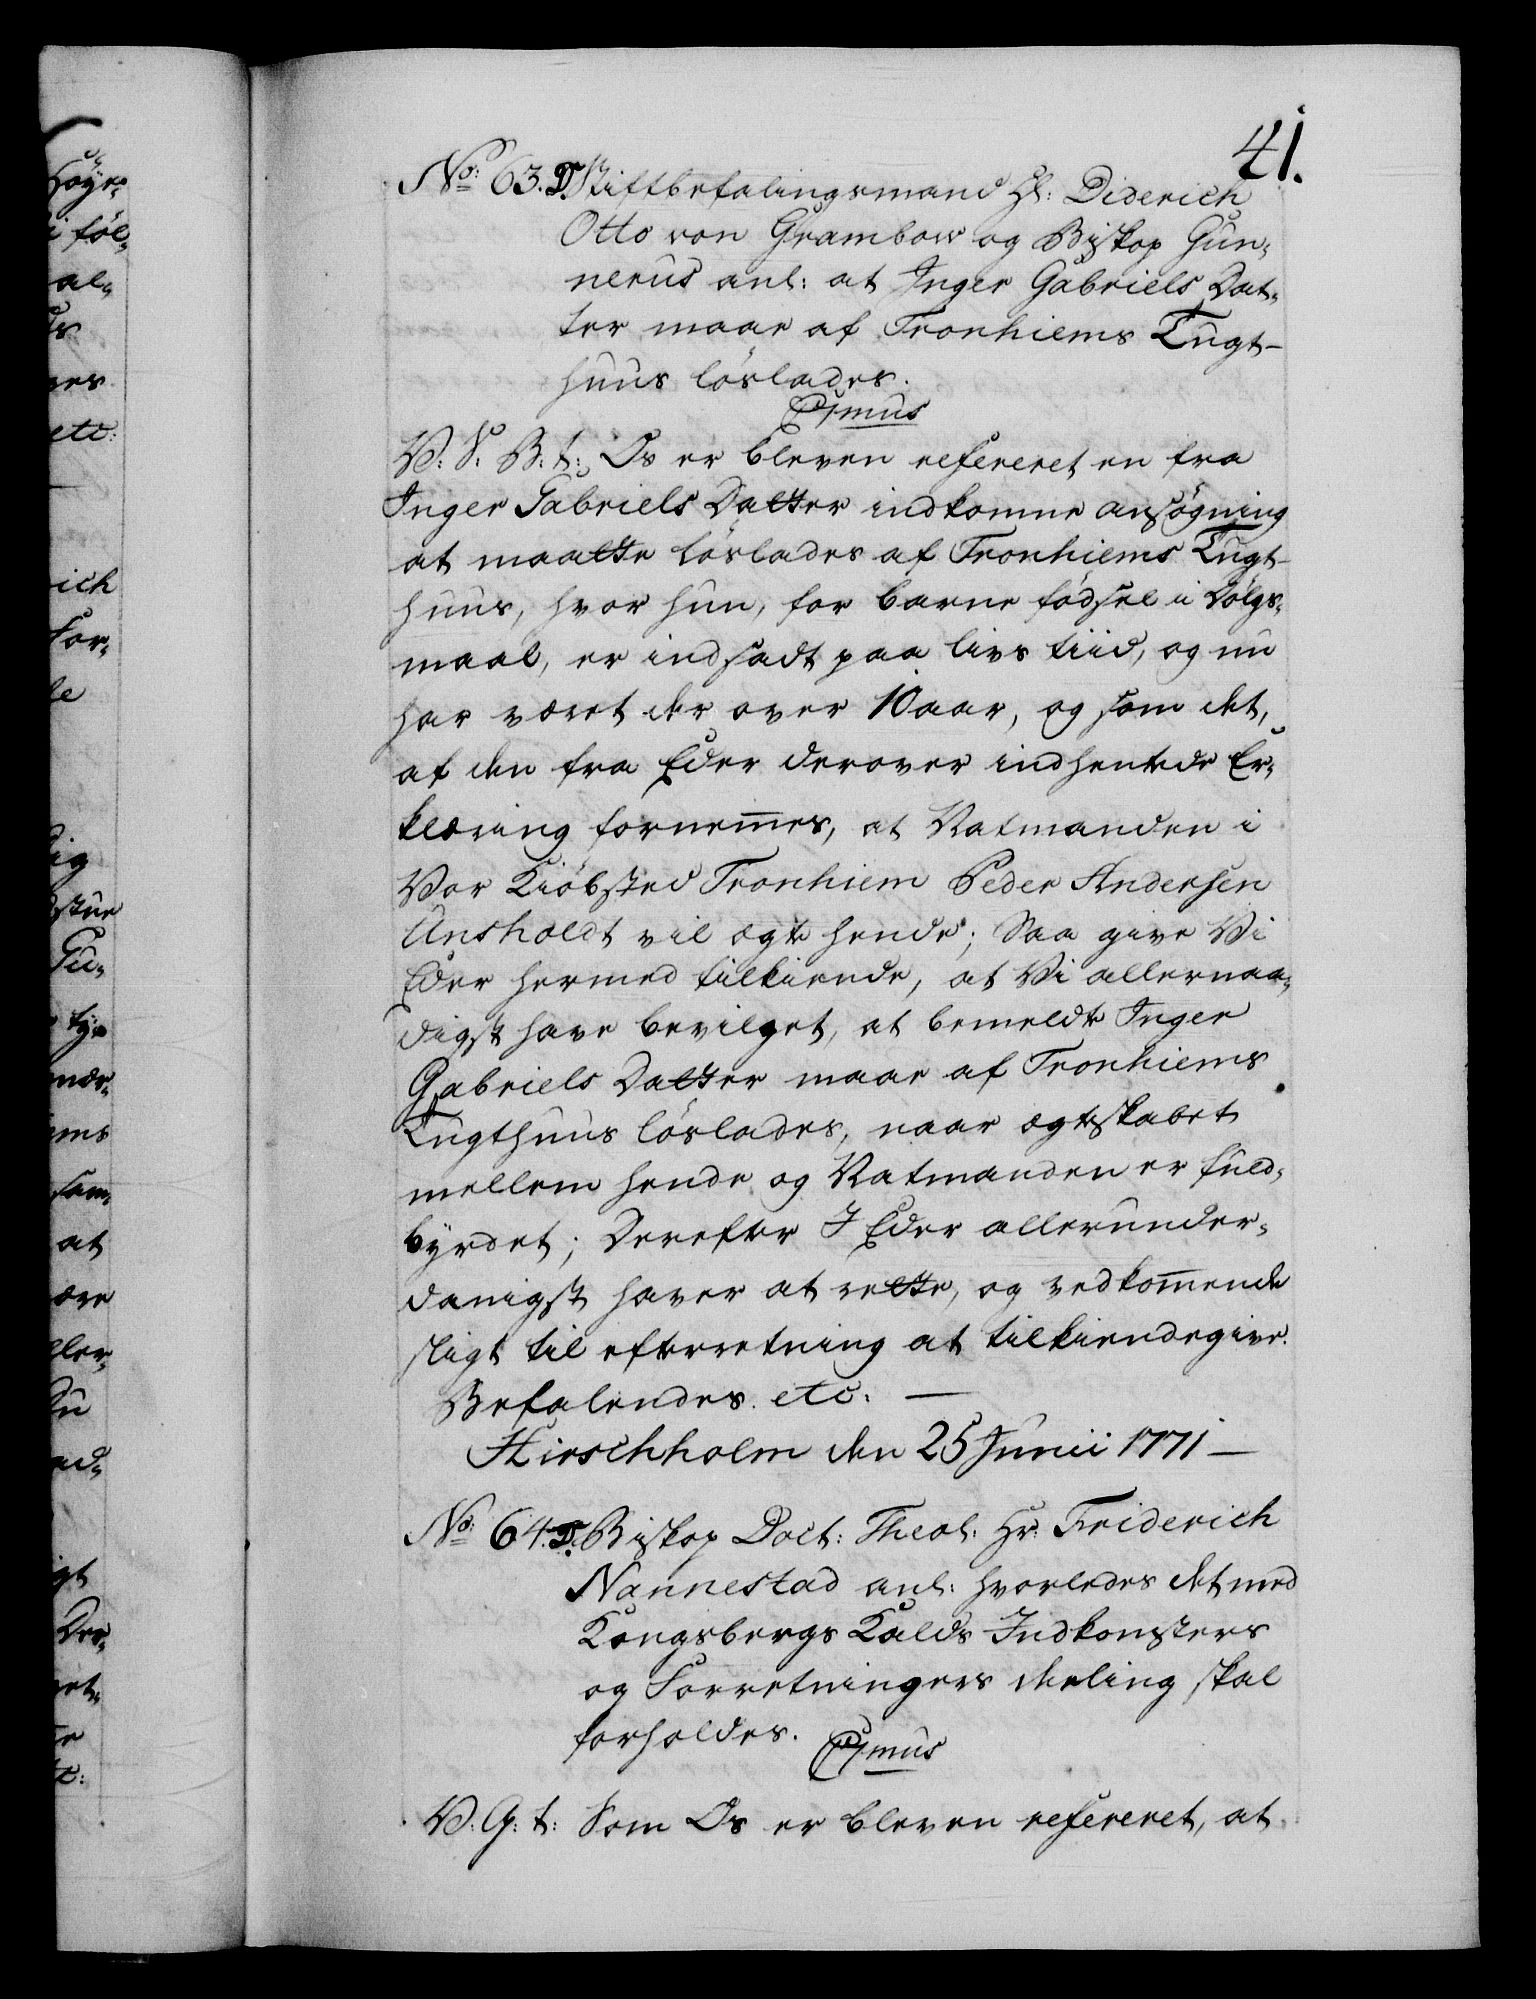 41.
No: 63. T. Stiftbefalingsmand Hl: Diderich
Otto von Grambow og Biskop Gun-
nerus anl: at Inger Gabriels Dat-
ter maae af Tronhiems Tugt-
huus løslades.
C7mus
V: S: B: t: Os er bleven refereret en fra
Inger Gabriels Datter indkomne ansøgning
at maatte løslades af Tronhiems Tugt-
huus, hvor hun, for barne fødsel i Dølgs-
maal, er indsadt paa livs tiid, og nu
har været der over 10 aar, og som det,
af den fra Eder derover indhentede Er-
klæring fornemmes, at Natmanden i
Vor Kiøbsted Tronhiem Peder Andersen
Ünsholdt vil ægte hende; Saa give Vi
Eder hermed tilkiende, at Vi allernaa-
digst have bevilget, at bemeldte Inger
Gabriels Datter maae af Tronhiems
Tugthuus løslades, naar ægteskabet
mellem hende og Natmanden er fuld-
byrdet; Derefter I Eder allerunder-
danigst haver at rette, og vedkommende
sligt til efterretning at tilkiendegive.
Befalendes etc: —
Hirschholm den 25 Junii 1771 —
No: 64. T. Biskop Doct: Theol: Hr: Friderich
Nannestad anl: hvorledes det med
Kongsbergs Kalds Indkomsters
og Forretningers deeling skal
forholdes.
C7mus
V: G: t: Som Os er bleven refereret, at